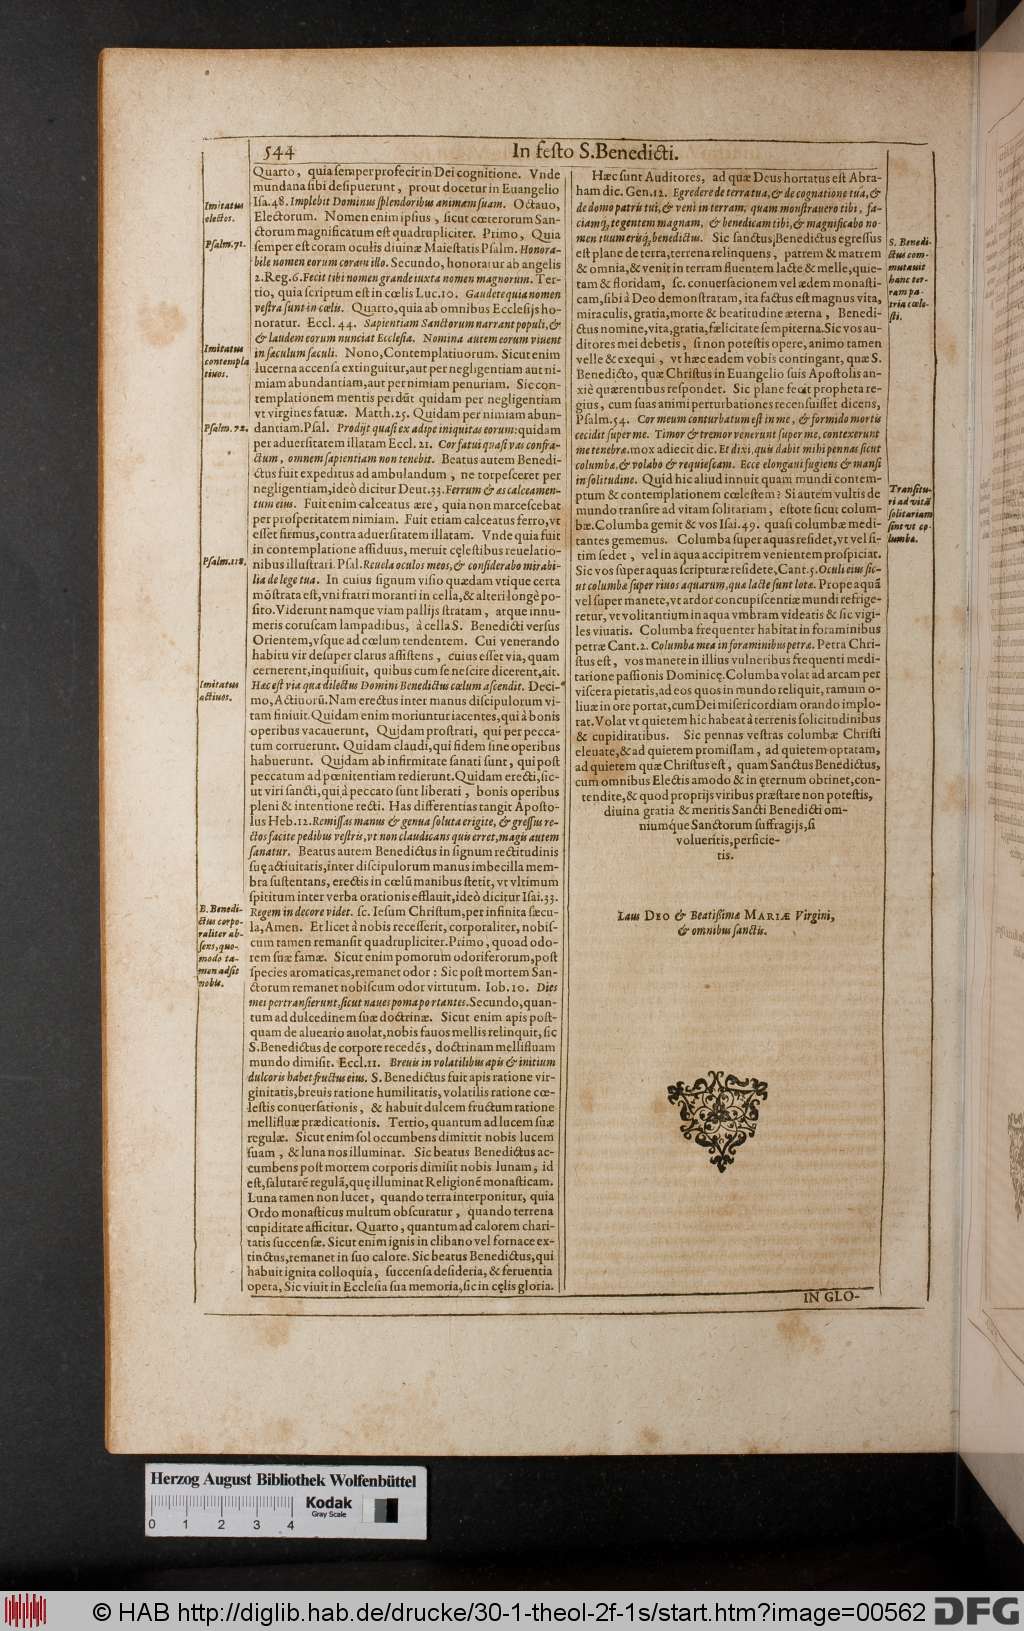 544
In festo S. Benedicti.
Quarto, quia semper profecit in Dei cognitione. Vnde
mundana sibi desipuerunt, prout docetur in Euangelio
Isa. 48. Implebit Dominus splendoribus animam suam. Octauo,
Electorum. Nomen enim ipsius, sicut cœterorum San-
ctorum magnificatum est quadrupliciter. Primo, Quia
semper est coram oculis diuinæ Maiestatis Psalm. Honora-
bile nomen eorum coram illo. Secundo, honoratur ab angelis
2. Reg. 6. Fecit tibi nomen grande iuxta nomen magnorum. Ter-
tio, quia scriptum est in cœlis Luc. 10. Gaudete quia nomen
vestra sunt in cœlis. Quarto, quia ab omnibus Ecclesijs ho-
noratur. Eccl. 44. Sapientiam Sanctorum narrant populi, &
& laudem eorum nunciat Ecclesia. Nomina autem eorum viuent
in sæculum sæculi. Nono, Contemplatiuorum. Sicut enim
lucerna accensa extinguitur, aut per negligentiam aut ni-
miam abundantiam, aut per nimiam penuriam. Sic con-
templationem mentis perdūt quidam per negligentiam
vt virgines fatuæ. Matth. 25. Quidam per nimiam abun-
dantiam. Psal. Prodijt quasi ex adipe iniquitas eorum: quidam
per aduersitatem illatam Eccl. 21. Cor fatui quasi vas confra-
ctum, omnem sapientiam non tenebit. Beatus autem Benedi-
ctus fuit expeditus ad ambulandum, ne torpesceret per
negligentiam, ideò dicitur Deut. 33. Ferrum & æs calceamen-
tum eius. Fuit enim calceatus ære, quia non marcescebat
per prosperitatem nimiam. Fuit etiam calceatus ferro, vt
esset firmus, contra aduersitatem illatam. Vnde quia fuit
in contemplatione assiduus, meruit cęlestibus reuelatio-
nibus illustrari. Psal. Reuela oculos meos, & considerabo mirabi-
lia de lege tua. In cuius signum visio quædam vtique certa
mōstrata est, vni fratri moranti in cella, & alteri longè po-
sito. Viderunt namque viam pallijs stratam, atque innu-
meris coruscam lampadibus, à cella S. Benedicti versus
Orientem, vsque ad cœlum tendentem. Cui venerando
habitu vir desuper clarus assistens, cuius esset via, quam
cernerent, inquisiuit, quibus cum se nescire dicerent, ait.
Hæc est via qua dilectus Domini Benedictus cœlum ascendit. Deci-
mo, Actiuorū. Nam erectus inter manus discipulorum vi-
tam finiuit. Quidam enim moriuntur iacentes, qui à bonis
operibus vacauerunt, Quidam prostrati, qui per pecca-
tum corruerunt. Quidam claudi, qui fidem sine operibus
habuerunt. Quidam ab infirmitate sanati sunt, qui post
peccatum ad pœnitentiam redierunt. Quidam erecti, sic-
ut viri sancti, qui à peccato sunt liberati, bonis operibus
pleni & intentione recti. Has differentias tangit Aposto-
lus Heb. 12. Remissas manus & genua soluta erigite, & gressus re-
ctos facite pedibus vestris, vt non claudicans quis erret, magis autem
sanatur. Beatus autem Benedictus in signum rectitudinis
suę actiuitatis, inter discipulorum manus imbecilla mem-
bra sustentans, erectis in cœlū manibus stetit, vt vltimum
spititum inter verba orationis efflauit, ideò dicitur Isai. 33.
Regem in decore videt. sc. Iesum Christum, per infinita sæcu-
la, Amen. Et licet à nobis recesserit, corporaliter, nobis-
cum tamen remansit quadrupliciter. Primo, quoad odo-
rem suæ famæ. Sicut enim pomorum odoriferorum, post
species aromaticas, remanet odor: Sic post mortem San-
ctorum remanet nobiscum odor virtutum. Iob. 10. Dies
mei pertransierunt, sicut naues poma portantes. Secundo, quan-
tum ad dulcedinem suæ doctrinæ. Sicut enim apis post-
quam de alueario auolat, nobis fauos mellis relinquit, sic
S. Benedictus de corpore recedēs, doctrinam mellifluam
mundo dimisit. Eccl. 11. Breuis in volatilibus apis & initium
dulcoris habet fructus eius. S. Benedictus fuit apis ratione vir-
ginitatis, breuis ratione humilitatis, volatilis ratione cœ-
lestis conuersationis, & habuit dulcem fructum ratione
mellifluæ prædicationis. Tertio, quantum ad lucem suæ
regulæ. Sicut enim sol occumbens dimittit nobis lucem
suam, & luna nos illuminat. Sic beatus Benedictus ac-
cumbens post mortem corporis dimisit nobis lunam, id
est, salutarē regulā, quę illuminat Religionē monasticam.
Luna tamen non lucet, quando terra interponitur, quia
Ordo monasticus multum obscuratur, quando terrena
cupiditate afficitur. Quarto, quantum ad calorem chari-
tatis succensæ. Sicut enim ignis in clibano vel fornace ex-
tinctus, remanet in suo calore. Sic beatus Benedictus, qui
habuit ignita colloquia, succensa desideria, & feruentia
opera, Sic viuit in Ecclesia sua memoria, sic in cęlis gloria.
Imitatus
electos.
Psalm. 71.
Imitatus
contempla
tiuos.
Psalm. 72.
Psalm. 118.
Imitatus
actiuos.
B. Benedi-
ctus corpo-
raliter ab-
sens, quo-
modo ta-
men adsit
nobis.
Hæc sunt Auditores, ad quæ Deus hortatus est Abra-
ham dic. Gen. 12. Egredere de terra tua, & de cognatione tua, &
de domo patris tui, & veni in terram, quam monstrauero tibi, fa-
ciamq́, te gentem magnam, & benedicam tibi, & magnificabo no-
men tuum erisq́, benedictus. Sic sanctus Benedictus egressus
est plane de terra, terrena relinquens, patrem & matrem
& omnia, & venit in terram fluentem lacte & melle, quie-
tam & floridam, sc. conuersacionem vel ædem monasti-
cam, sibi à Deo demonstratam, ita factus est magnus vita,
miraculis, gratia, morte & beatitudine æterna, Benedi-
ctus nomine, vita, gratia, fælicitate sempiterna. Sic vos au-
ditores mei debetis, si non potestis opere, animo tamen
velle & exequi, vt hæc eadem vobis contingant, quæ S.
Benedicto, quæ Christus in Euangelio suis Apostolis an-
xiè quærentibus respondet. Sic plane fecit propheta re-
gius, cum suas animi perturbationes recensuisset dicens,
Psalm. 54. Cor meum conturbatum est in me, & formido mortis
cecidit super me. Timor & tremor venerunt super me, contexerunt
me tenebræ. mox adiecit dic. Et dixi, quis dabit mihi pennas sicut
columbæ, & volabo & requiescam. Ecce elongaui fugiens & mansi
in solitudine. Quid hic aliud innuit quam mundi contem-
ptum & contemplationem cœlestem? Si autem vultis de
mundo transire ad vitam solitariam, estote sicut colum-
bæ. Columba gemit & vos Isai. 49. quasi columbæ medi-
tantes gememus. Columba super aquas residet, vt vel si-
tim sedet, vel in aqua accipitrem venientem prospiciat.
Sic vos super aquas scripturæ residete, Cant. 5. Oculi eius sic-
ut columbæ super riuos aquarum, quæ lacte sunt lotæ. Prope aquā
vel super manete, vt ardor concupiscentiæ mundi refrige-
retur, vt volitantium in aqua vmbram videatis & sic vigi-
les viuatis. Columba frequenter habitat in foraminibus
petræ Cant. 2. Columba mea in foraminibus petræ. Petra Chri-
stus est, vos manete in illius vulneribus frequenti medi-
tatione passionis Dominicę. Columba volat ad arcam per
viscera pietatis, ad eos quos in mundo reliquit, ramum o-
liuæ in ore portat, cum Dei misericordiam orando implo-
rat. Volat vt quietem hic habeat à terrenis solicitudinibus
& cupiditatibus. Sic pennas vestras columbæ Christi
eleuate, & ad quietem promissam, ad quietem optatam,
ad quietem quæ Christus est, quam Sanctus Benedictus,
cum omnibus Electis amodo & in ęternum obtinet, con-
tendite, & quod proprijs viribus præstare non potestis,
diuina gratia & meritis Sancti Benedicti om-
niumque Sanctorum suffragijs, si
volueritis, perficie-
tis.
Laus DEO & Beatissimæ MARIÆ Virgini,
& omnibus sanctis.
S. Benedi-
ctus com-
mutauit
hanc ter-
ram pa-
tria cœle-
sti.
Transitu-
ri ad vitā
solitariam
sint vt co-
lumba.
IN GLO-
Herzog August Bibliothek Wolfenbüttel
Kodak
Gray Scale
0 1 2 3 4
© HAB http://diglib.hab.de/drucke/30-1-theol-2f-1s/start.htm?image=00562
DFG